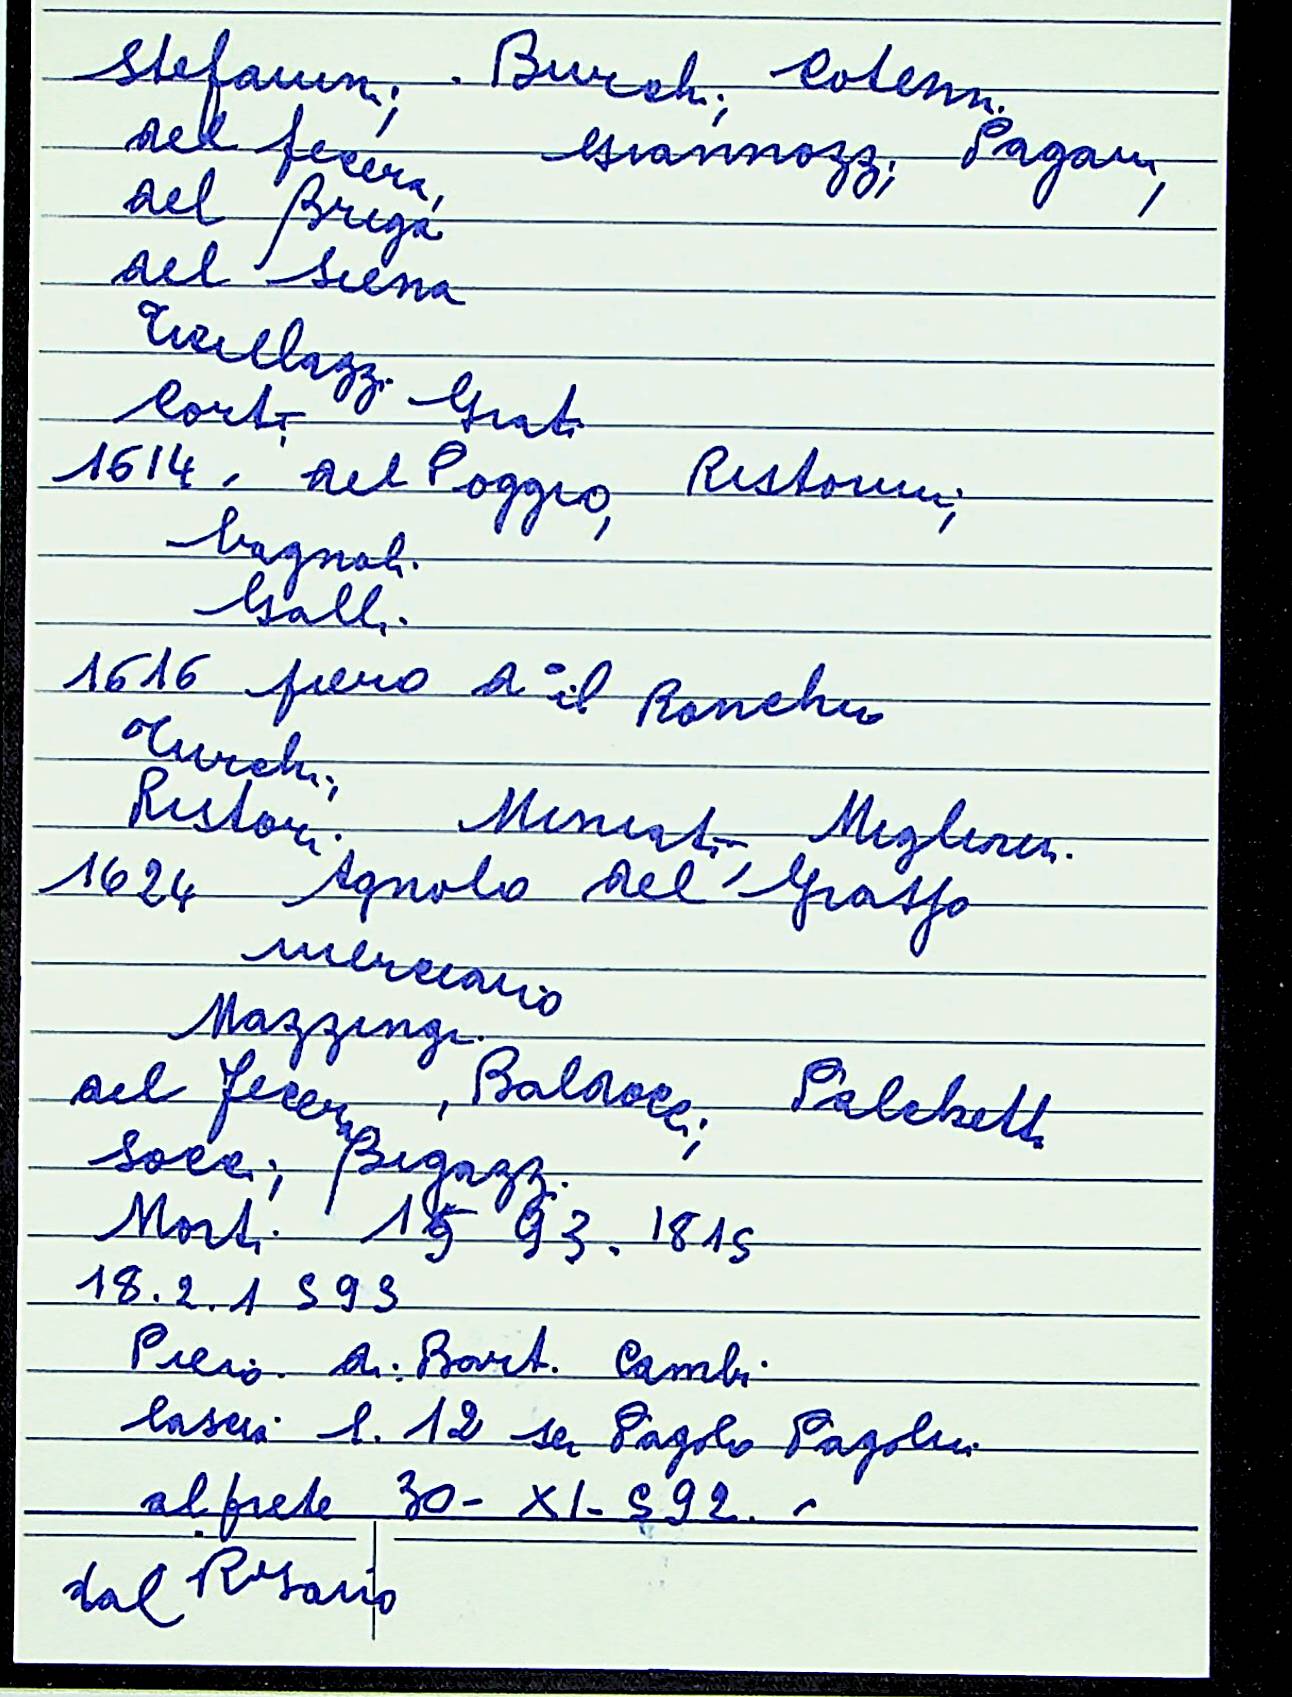 Stefanini, Burchi, Cotenni.
del fecera, Giannozzi, Pagani,
del Briga
del Siena
Tirellazzi.
Corti, Grati
1614, del Poggio, Ristorini,
bagnoli.
Galli.
1616 piero d° il Ronchino
Turchi,
Ristori. Miniati, Migliorin.
1624 Agnolo del Grasso
merciaio
Mazzingi.
del fecera, Baldocci, Palchetti
Socci, Bigazzi.
Morti. 15 93. 1815
18.2.1593
Piero. di Bart. Cambi
lascia l. 12 ser Pagolo Pagolini
al prete 30-XI-592.
dal Rosario